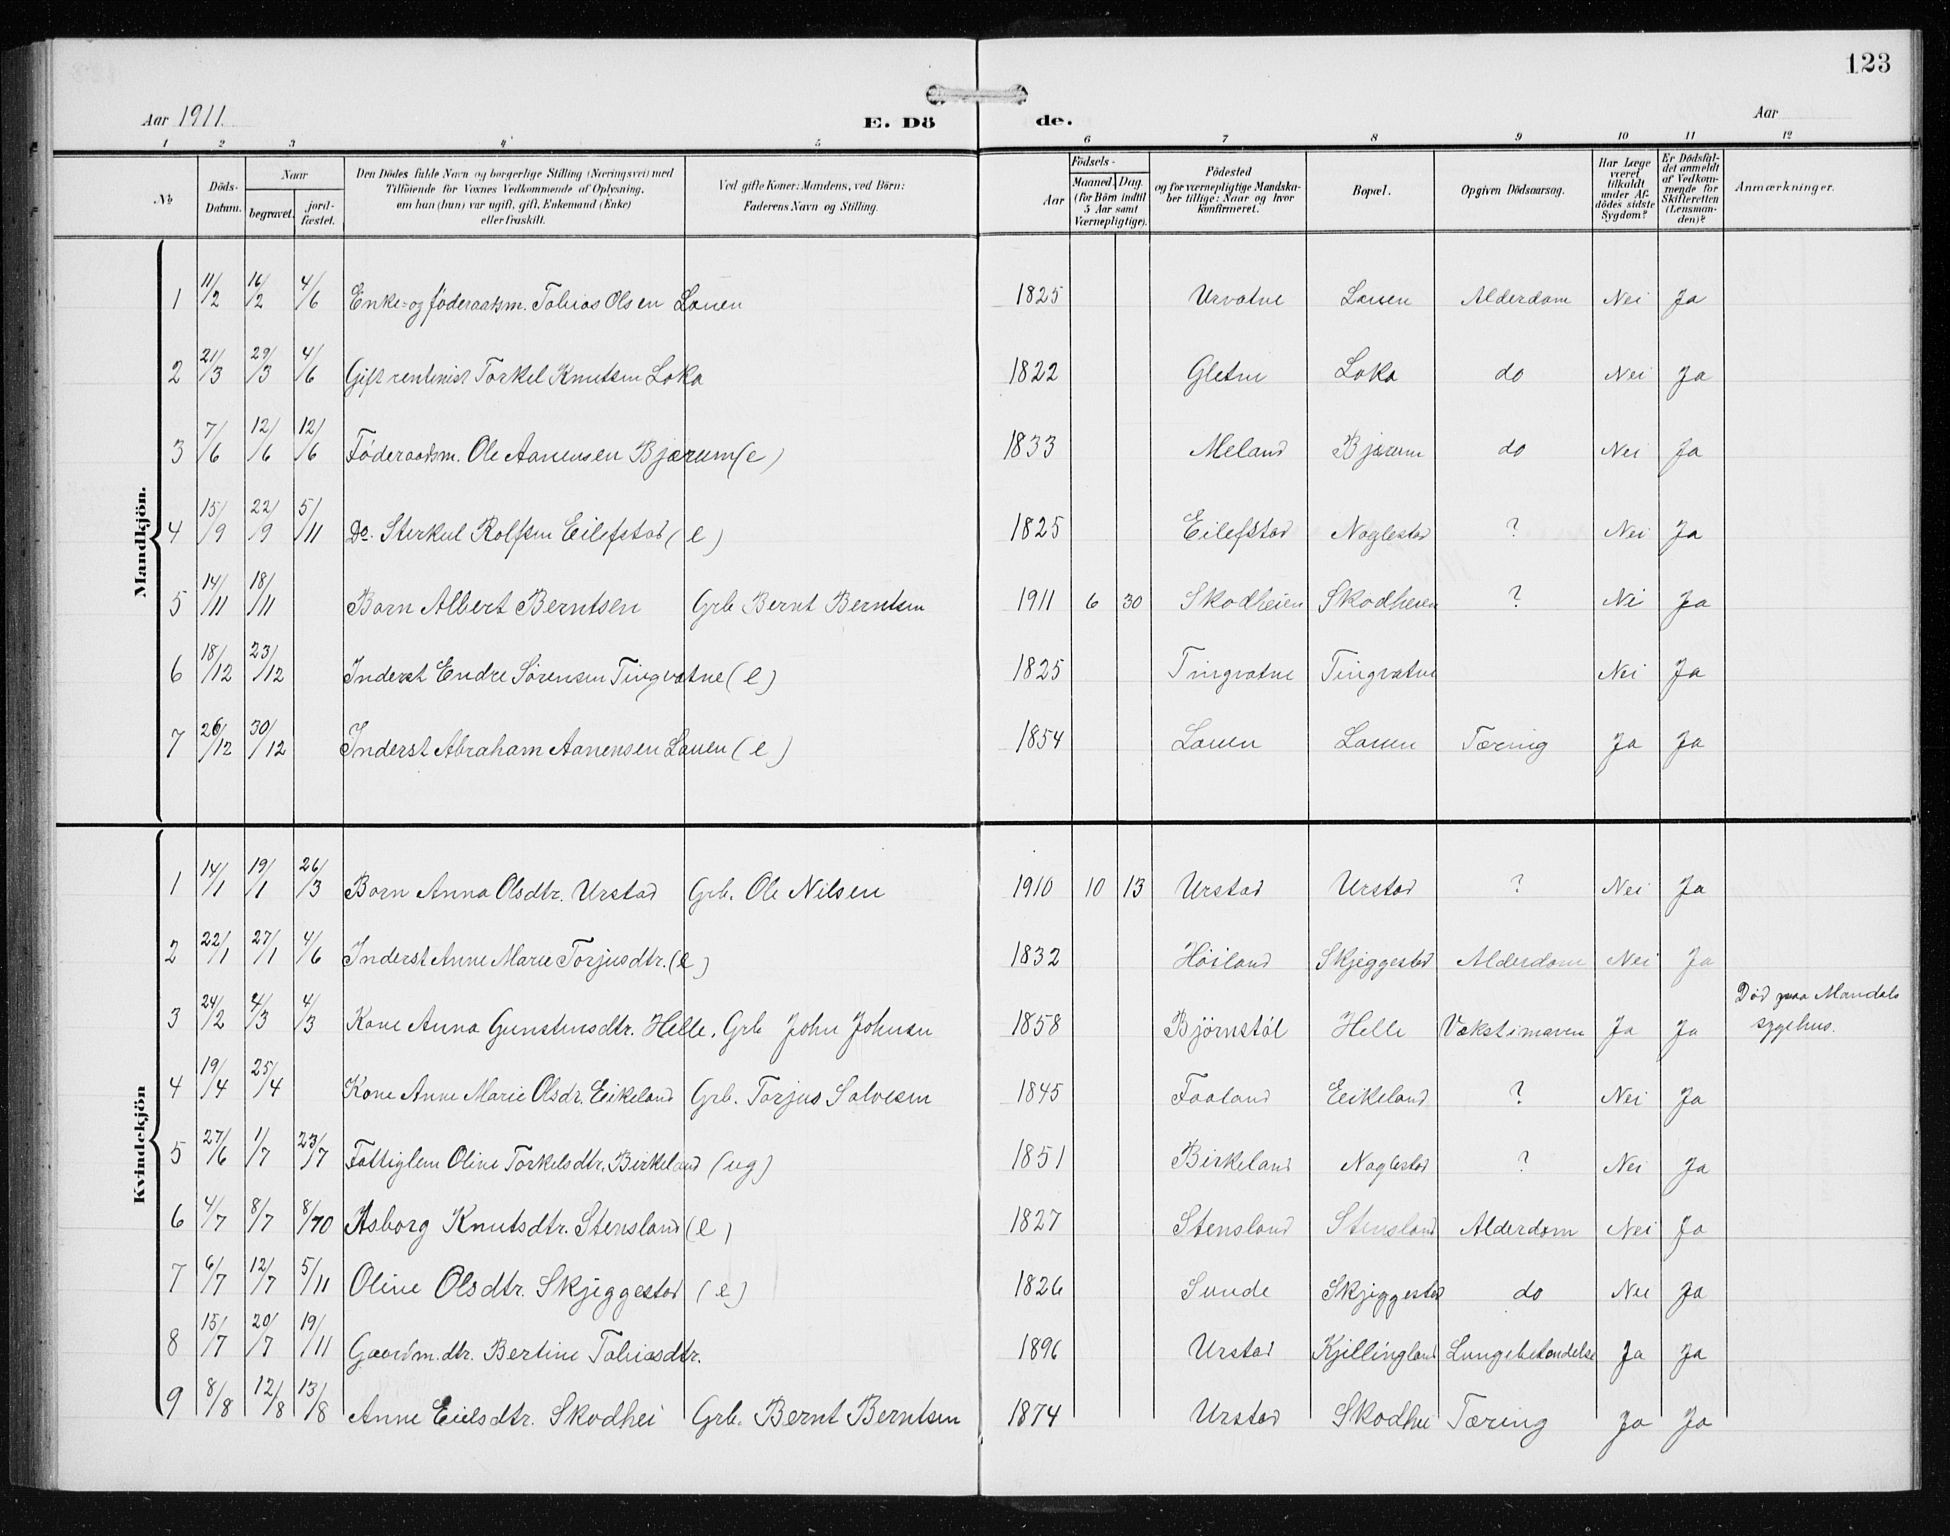 123
Aar 1911.
E. Dö de.
Aar
1 2 3 4 5 6 7 8 9 10 11 12
№ Döds-Datum. Naar begravet. jord-fæstet. Den Dödes fulde Navn og borgerlige Stilling (Næringsvei) med Tilföiende for Voxnes Vedkommende af Oplysning, om han (hun) var ugift, gift, Enkemand (Enke) eller fraskilt. Ved gifte Koner: Mandens, ved Börn: Faderens Navn og Stilling. Födsels- Aar Maaned. Dag. (for Börn indtil 5 Aar samt Værnepligtige). Födested og for værnepligtige Mandskaber tillige: Naar og hvor konfirmeret. Bopæl. Opgiven Dödsaarsag. Har Læge været tilkaldt under Afdödes sidste Sygdom? Er Dödsfaldet anmeldt af Vedkommende for Skifteretten (Lensmanden)? Anmærkninger.
Mandkjön.
1 11/2 16/2 4/6 Enke- og föderaadsm. Tobias Olsen Lauen 1825 Urvatne Lauen Alderdom Nei Ja
2 21/3 29/3 4/6 Gift rentenist Torkel Knutsen Loka 1822 Gletne Loka do Nei Ja
3 7/6 12/6 12/6 Föderaadsm. Ole Aanensen Bjærum (e) 1833 Meland Bjærum do Nei Ja
4 15/9 22/9 5/11 Do. Sterkul Rolfsen Eilefstad (e) 1825 Eilefstad Naglestad ? Nei Ja
5 14/11 18/11 Barn Albert Berntsen Grb Bernt Berntsen 1911 6 30 Skodheien Skodheien ? Nei Ja
6 18/12 23/12 Inderst Endre Sørensen Tingvatne (e) 1825 Tingvatne Tingvatne Nei Ja
7 26/12 30/12 Inderst Abraham Aanensen Lauen (e) 1854 Lauen Lauen Tæring Ja Ja
Kvindekjön
1 14/1 19/1 26/3 Barn Anna Olsdtr. Urstad Grb. Ole Nilsen 1910 10 13 Urstad Urstad ? Nei Ja
2 22/1 27/1 4/6 Inderst Anne Marie Torjusdtr. (e) 1832 Höiland Skjeggestad Alderdom Nei Ja
3 24/2 4/3 4/3 Kone Anna Gunstensdtr. Helle, Grb John Johnsen 1858 Björnstöl Helle Vækst i maven Ja Ja Død paa Mandals sygehus.
4 19/4 25/4 Kone Anne Marie Olsdr. Eikeland Grb. Torjus Salvesen 1845 Faaland Eeikeland ? Nei Ja
5 27/6 1/7 23/7 Fattiglem Oline Torkelsdtr. Birkeland (ug) 1851 Birkeland Naglestad ? Nei Ja
6 4/7 8/7 8/10 Asborg Knutsdtr. Stensland (e) 1827 Stensland Stensland Alderdom Nei Ja
7 6/7 12/7 5/11 Oline Olsdtr. Skjeggestad (e) 1826 Sunde Skjeggestad do Nei Ja
8 15/7 20/7 19/11 Gaardm. dtr. Bertine Tobiasdtr. 1896 Urstad Kjillingland Lungebetændelse Ja Ja
9 8/8 12/8 13/8 Anne Eielsdtr. Skodhei Grb. Bernt Berntsen 1874 Urstad Skodhei Tæring Ja Ja